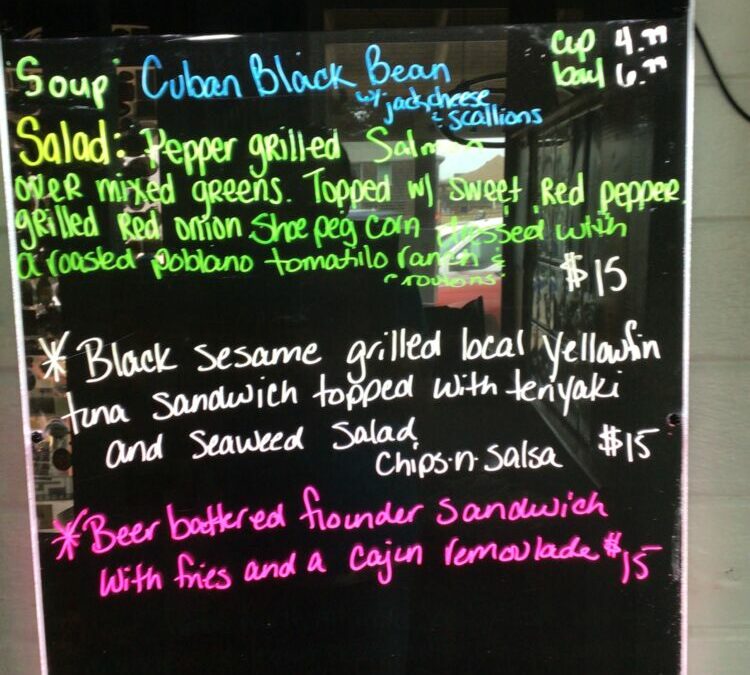 Soup Cuban Black Bean cup 4.99
w/ jack cheese bowl 6.99
& scallions
Salad: Pepper grilled Salmon
over mixed greens. Topped w/ sweet Red pepper
grilled Red onion Shoe peg corn dressed with
a roasted poblano tomatilo ranch &
croutons $15
* Black sesame grilled local yellowfin
tuna sandwich topped with teriyaki
and seaweed salad
chips-n-salsa $15
* Beer battered flounder sandwich
with fries and a cajun remoulade $15